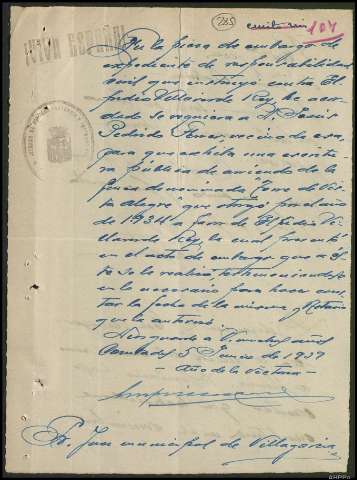 285
107
¡VIVA ESPAÑA!
En la pieza de embargo de
expediente de responsabilidad
civil que instruyo contra El
pidio Villaverde Rey, he acor
dado se requiera a D. Luis
Pedrido Ferrer, vecino de esa,
para que exhiba una escritu
ra pública de arriendo de la
finca denominada "Torre de Vis
ta Alegre" que otorgó por el año
de 1934 a favor de Elpidio Vi
llaverde Rey, la cual presentó
en el acto de embargo que a és
te se le realizó
en lo necesario para hacer cons
tar la fecha de la misma y Notario
que la autorizó
Dios guarde a V. muchos años
Cambados 5 Junio de 1939
Año de la Victoria
Sr. Juez municipal de Villagarcía
AHPPo